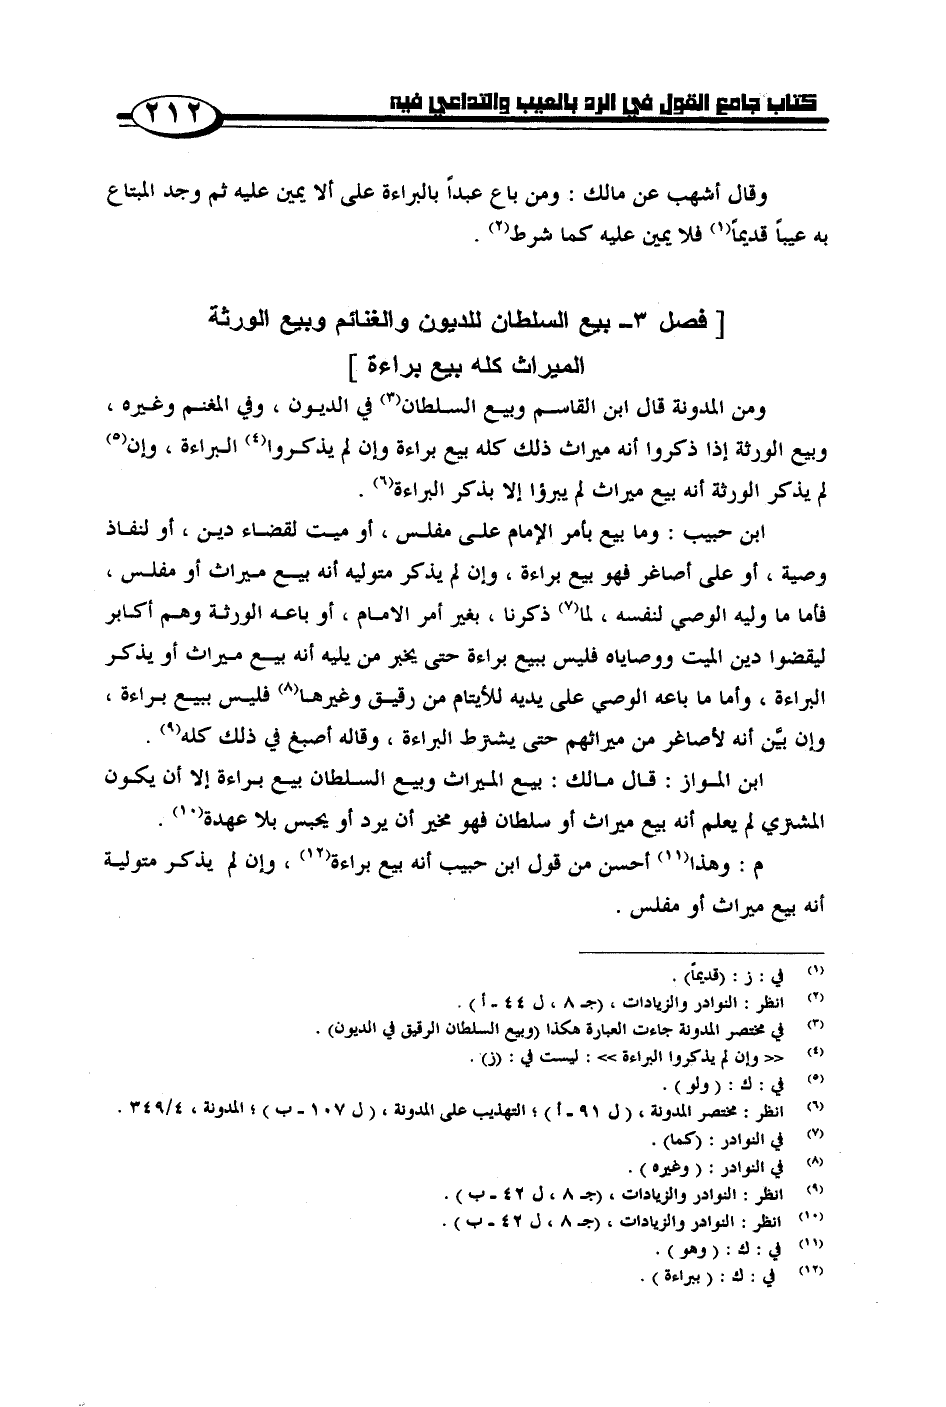 كتاب جامع القول في الرد بالعيب والتداعي فيه
٢١٢
وقال أشهب عن مالك : ومن باع عبداً بالبراءة على ألا يمين عليه ثم وجد المبتاع
به عيباً قديماً(١) فلا يمين عليه كما شرط(٢) .
[ فصل ٣ـ بيع السلطان للديون والغنائم وبيع الورثة
الميراث كله بيع براءة ]
ومن المدونة قال ابن القاسم وبيع السلطان(٣) في الديون ، وفي المغنم وغيره ،
وبيع الورثة إذا ذكروا أنه ميراث ذلك كله بيع براءة وإن لم يذكروا(٤) البراءة ، وإن(٥)
لم يذكر الورثة أنه بيع ميراث لم يبرؤا إلا بذكر البراءة(٦) .
ابن حبيب : وما بيع بأمر الإمام على مفلس ، أو ميت لقضاء دين ، أو لنفاذ
وصية ، أو على أصاغر فهو بيع براءة ، وإن لم يذكر متوليه أنه بيع ميراث أو مفلس ،
فأما ما وليه الوصي لنفسه ، لما(٧) ذكرنا ، بغير أمر الامام ، أو باعه الورثة وهم أكابر
ليقضوا دين الميت ووصاياه فليس ببيع براءة حتى يخبر من يليه أنه بيع ميراث أو يذكر
البراءة ، وأما ما باعه الوصي على يديه للأيتام من رقيق وغيرها(٨) فليس ببيع براءة ،
وإن بيَّن أنه لأصاغر من ميراثهم حتى يشترط البراءة ، وقاله أصبغ في ذلك كله(٩) .
ابن المواز : قال مالك : بيع الميراث وبيع السلطان بيع براءة إلا أن يكون
المشتري لم يعلم أنه بيع ميراث أو سلطان فهو مخير أن يرد أو يحبس بلا عهدة(١٠) .
م : وهذا(١١) أحسن من قول ابن حبيب أنه بيع براءة(١٢) ، وإن لم يذكر متولية
أنه بيع ميراث أو مفلس .
(١) في : ز : (قديماً) .
(٢) انظر : النوادر والزيادات ، (جـ ٨ ، ل ٤٤ ـ أ ) .
(٣) في مختصر المدونة جاءت العبارة هكذا (وبيع السلطان الرقيق في الديون) .
(٤) << وإن لم يذكروا البراءة >> : ليست في : (ز) .
(٥) في : ك : ( ولو ) .
(٦) انظر : مختصر المدونة ، ( ل ٩١ ـ أ ) ؛ التهذيب على المدونة ، ( ل ١٠٧ ـ ب ) ؛ المدونة ، ٣٤٩/٤ .
(٧) في النوادر : (كما) .
(٨) في النوادر : ( وغيره ) .
(٩) انظر : النوادر والزيادات ، (جـ ٨ ، ل ٤٢ ـ ب ) .
(١٠) انظر : النوادر والزيادات ، (جـ ٨ ، ل ٤٢ ـ ب ) .
(١١) في : ك : ( وهو ) .
(١٢) في : ك : ( ببراءة ) .